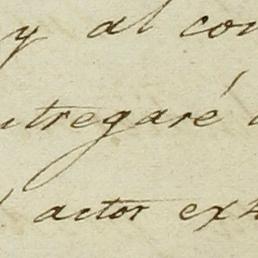 y al con
ntregaré
actor ex